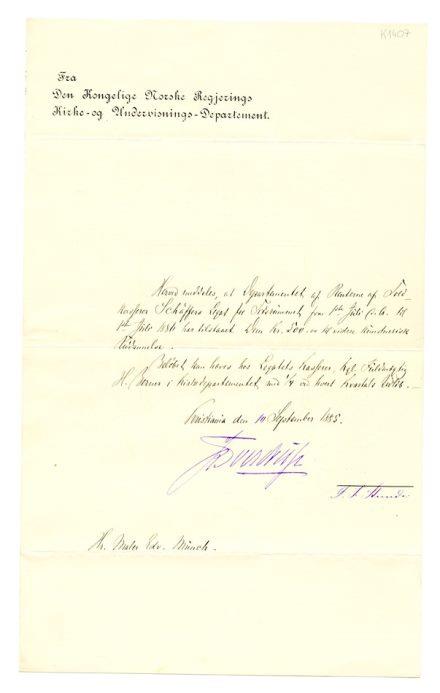 K1407
Fra
Den Kongelige Norske Regjerings
Kirke- og Undervisnings-Departement.
Herved meddeles, at Departementet af Renterne af Told-
kasserer Schäffers Legat for Tidsrummet fra 1ste Juli d.A. til
1ste Juli 1886 har tilstaaet Dem Kr. 500.00 til videre kunstnerisk
Uddannelse.
Beløbet kan hæves hos Legatets Kasserer, Kgl. Fuldmægtig
H. i Kirkedepartementet, med 1/4 ved hvert Kvartals Udløb.
Kristiania den 10 September 1885.
Hr. Maler Edv. Munch.